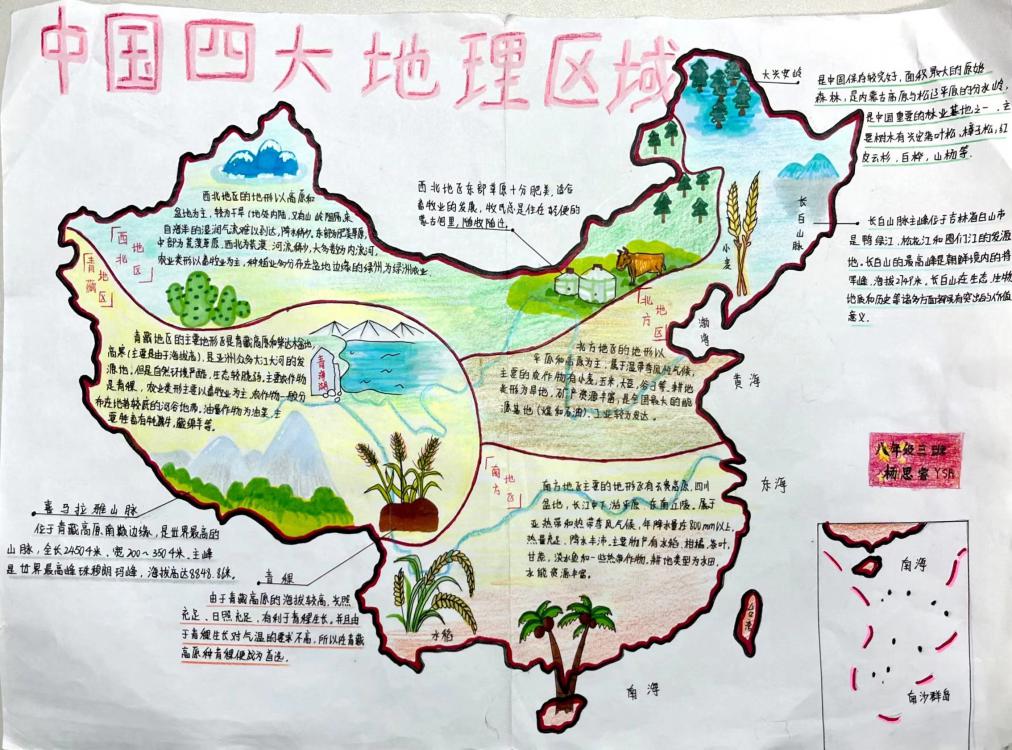 中国四大地理区域
大兴安岭
是中国保存较完好，面积最大的原始
森林，是内蒙古高原与松辽平原的分水岭，
是中国重要的林业基地之一，主
要树木有兴安落叶松、樟子松，红
皮云杉，白桦，山杨等.
西北地区东部草原十分肥美，适合
畜牧业的发展，牧民总是住在轻便的
蒙古包里，随牧随迁。
西北地区的地形以高原和
盆地为主，较为干旱（地处内陆，又有山岭阻隔，来
自海洋的湿润气流难以到达，降水稀少，东部为草原，
中部为荒漠草原，西北为荒漠.河流稀少，大多数为内流河，
农业类型以畜牧业为主，种植业多分布在盆地边缘的绿洲，为绿洲农业.
西北
地区
青藏
地区
长白山脉
小麦
长白山脉主峰位于吉林省白山市
是鸭绿江，松花江和图们江的发源
地。长白山的最高峰是朝鲜境内的将
军峰，海拔2749米。长白山在生态，生物
地质和历史等诸多方面都具有突出的价值
意义.
北方
地区
渤海
黄海
青藏地区的主要地形区是青藏高原和柴达木盆地，
高寒（主要是由于海拔高），是亚洲众多大江大河的发
源地，但是自然环境严酷，生态较脆弱。主要农作物
是青稞，农业类型主要以畜牧业为主，农作物一般分
布在地势较低的河谷地带，油料作物为油菜，主
要牲畜有牦牛，藏绵羊等。
青海湖
北方地区的地形以
平原和高原为主，属于温带季风气候，
主要的农作物有小麦，玉米，大豆，谷子等，耕地
类形为旱地，矿产资源丰富，是全国最大的能
源基地（煤和石油），工业较为发达。
八年级三班
杨思睿YSR
南方
地区
南方地区主要的地形有云贵高原，四川
盆地，长江中下游平原，东南丘陵。属于
亚热带和热带季风气候，年降水量在800mm以上，
热量充足、降水丰沛.主要物产有水稻，柑橘，茶叶，
甘蔗，淡水鱼和一些热带作物，耕地类型为水田，
水能资源丰富。
东海
喜马拉雅山脉
位于青藏高原南巅边缘，是世界最高的
山脉，全长2450千米，宽200~350千米，主峰
是世界最高峰珠穆朗玛峰，海拔高达8848.86米。
青稞
由于青藏高原的海拔较高，光照
充足、日照充足，有利于青稞生长。并且由
于青稞生长对气温的要求不高，所以在青藏
高原种青稞便成为首选。
水稻
台湾
南海
南海
南沙群岛